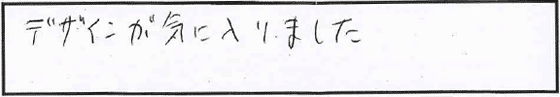 デザインが気に入りました